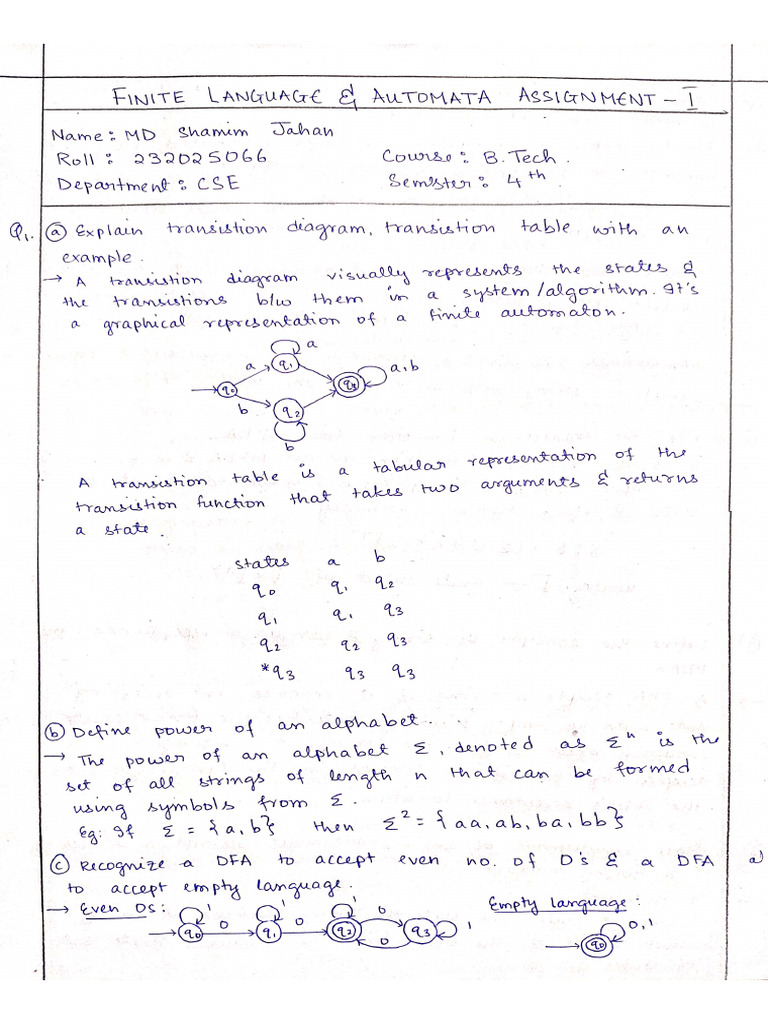 FINITE LANGUAGE & AUTOMATA ASSIGNMENT - I
Name: MD Shamim Jahan
Roll: 232025066 Course: B.Tech.
Department: CSE Semster: 4th.
Q1. (a) Explain transistion diagram, transistion table with an
example.
→ A transistion diagram visually represents the states &
the transistions b/w them in a system/algorithm. It's
a graphical representation of a finite automaton.
a
a q1 a,b
q0
b q2
b
A transistion table is a tabular representation of the
transistion function that takes two arguments & returns
a state.
states a b
q0 q1 q2
q1 q1 q3
q2 q2 q3
*q3 q3 q3
(b) Define power of an alphabet.
→ The power of an alphabet Σ, denoted as Σ^n is the
set of all strings of length n that can be formed
using symbols from Σ.
Eg: If Σ = {a, b} then Σ² = {aa, ab, ba, bb}
(c) Recognize a DFA to accept even no. of 0's & a DFA
to accept empty language.
→ Even 0s: Empty language:
1 1 1 0 0,1
q0 0 q1 0 q2 q3 1 q0
0